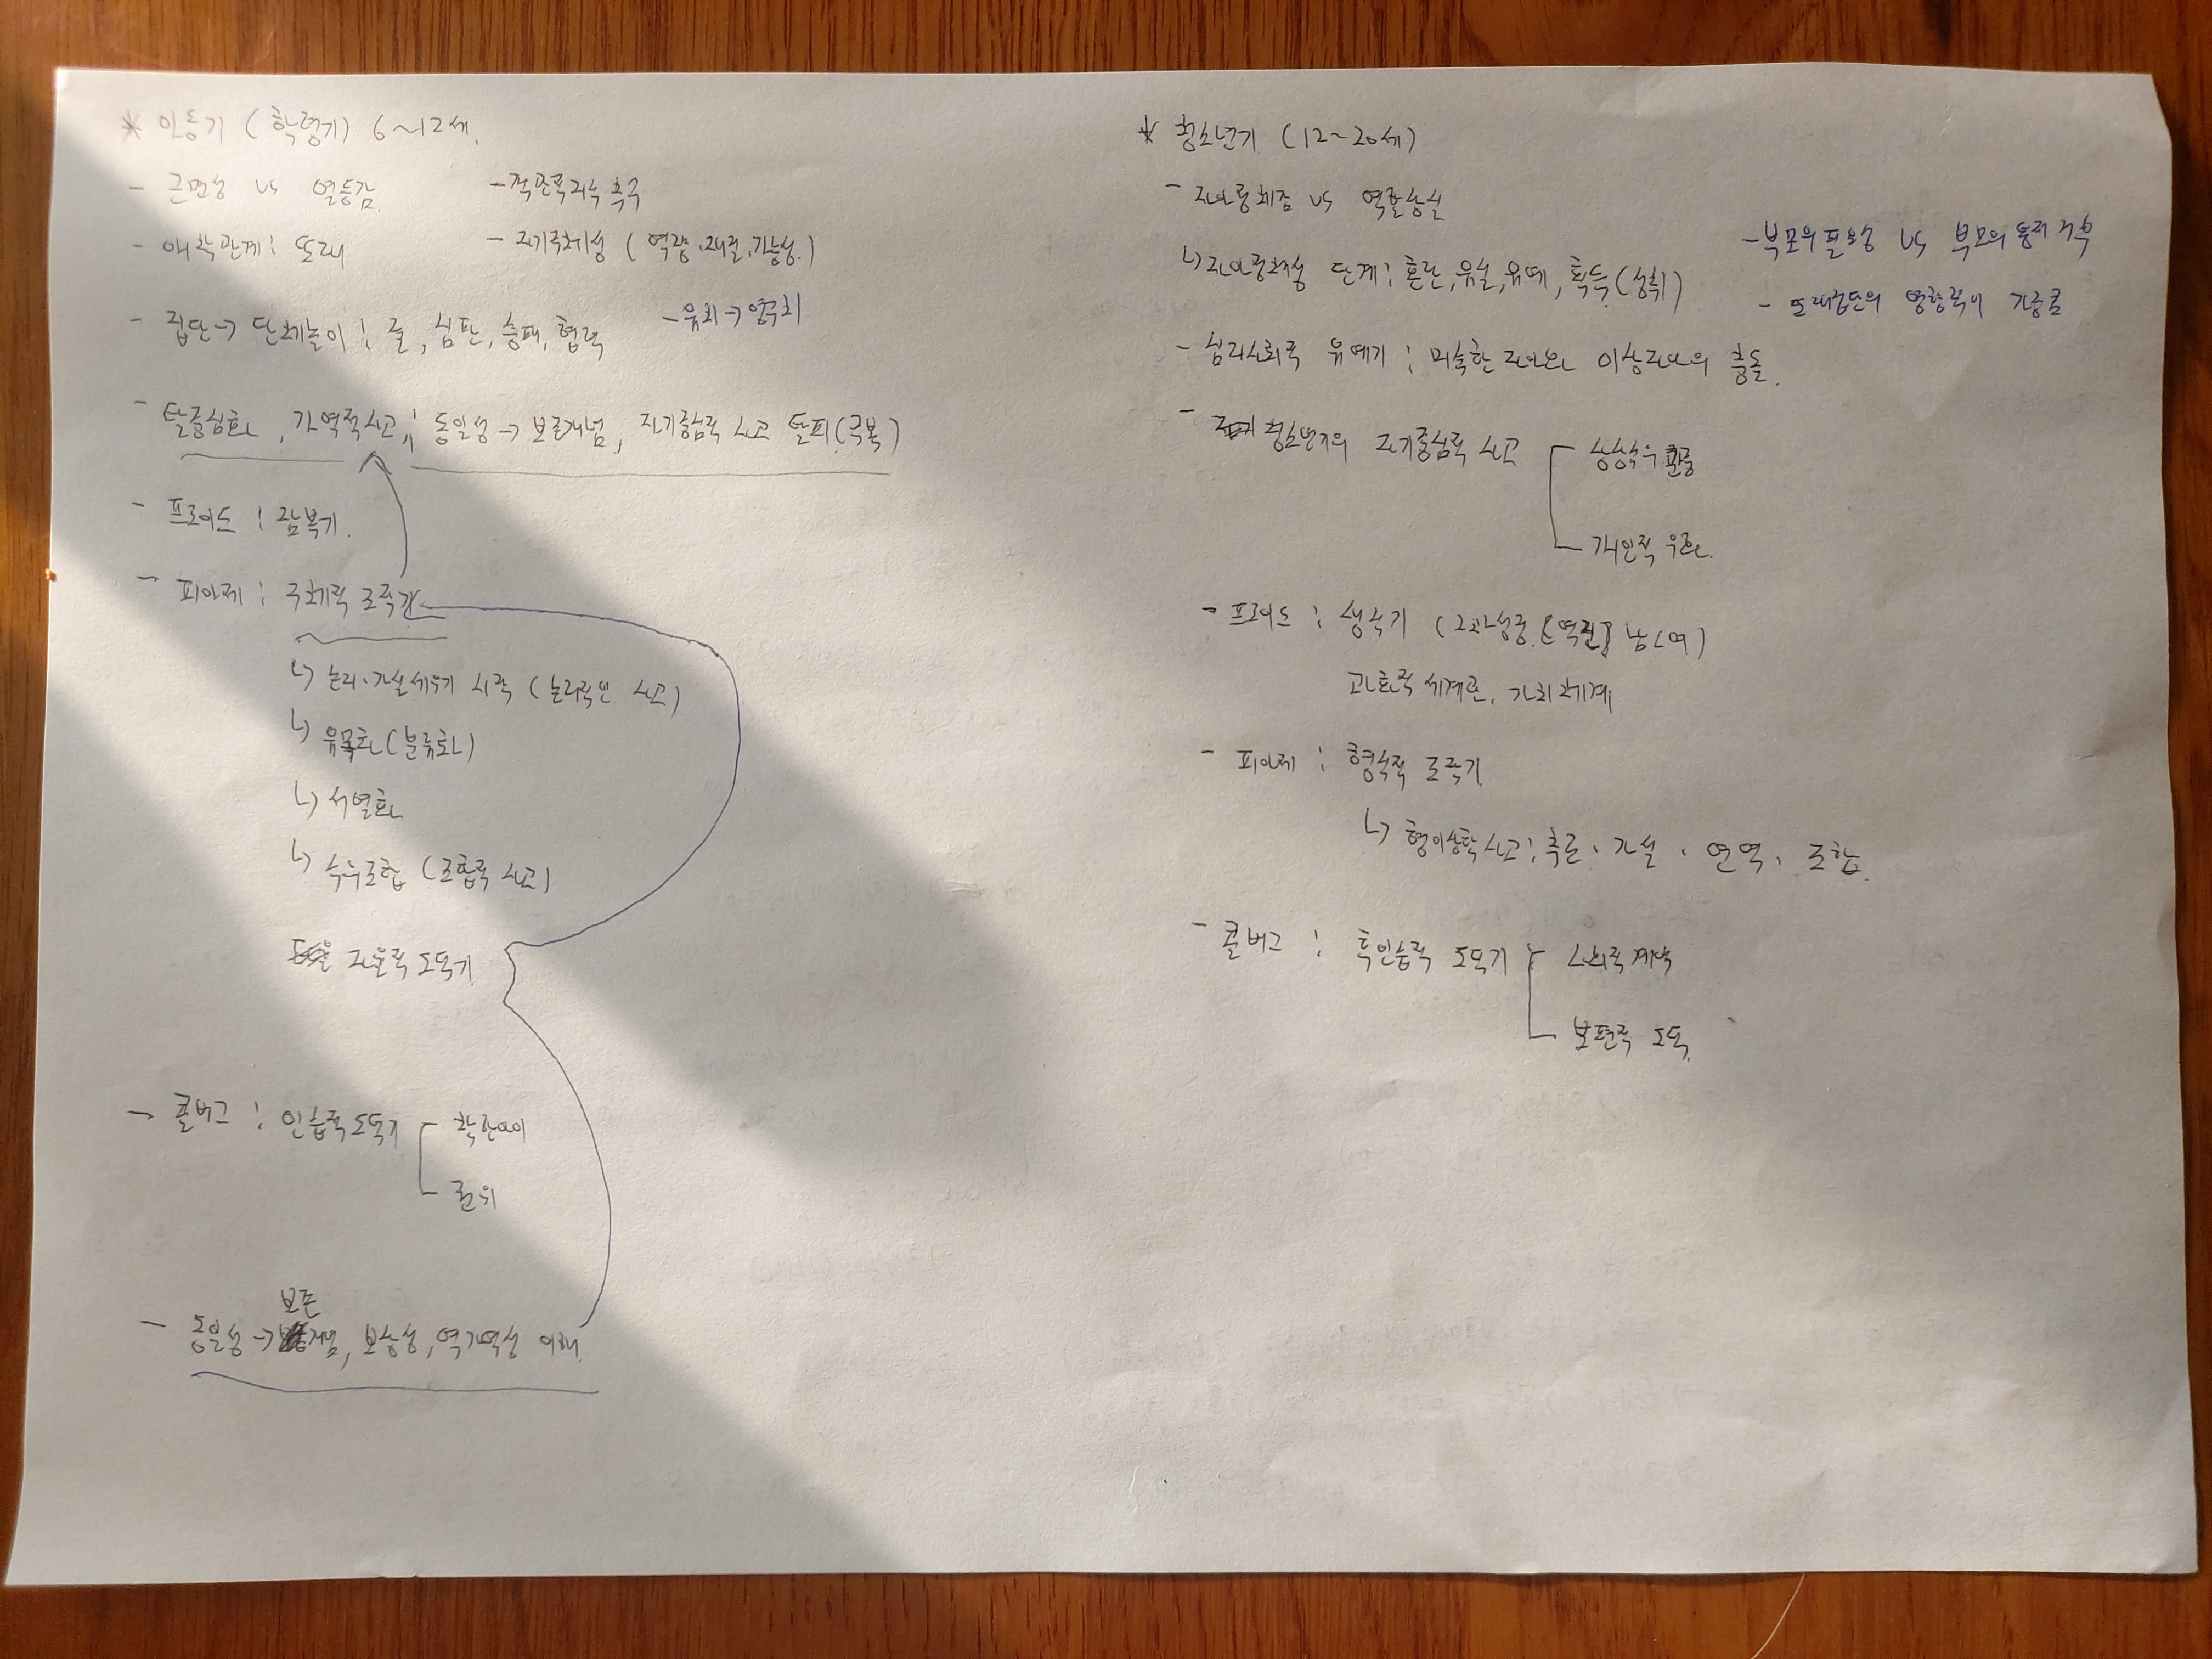 * 아동기 (학령기) 6~12세.
- 근면성 vs 열등감.
- 애착관계 : 또래
- 집단→ 단체놀이 : 룰, 심판, 승패, 협력
- 자기 (역량·재질·가능성.)
- 유치→영구치
- 탈중심화, 가역적사고, 동일성→보존개념, 자기중심적 사고 탈피(극복)
- 프로이드 : 잠복기.
- 피아제 : 구체적 조작기
↳ 논리·가설세우기 시작 (논리적인 사고)
↳ 유목화(분류화)
↳ 서열화
↳ 수우조합 (조합적 사고)
자율적 도덕기
- 콜버그 : 인습적 도덕기
착한아이
권위
보존
- 동일성→개념, 보상성, 역가역성 이해.
* 청소년기 (12~20세)
- 자아통체감 vs 역할상실
↳자아중체성 단계 : 혼란, 유실, 유예, 획득(성취)
- 심리사회적 유예기 : 미숙한 자아와 이상자아의 충돌.
- 청소년기의 자기중심적 사고
상상속의 관중
개인적 우화.
- 프로이드 : 생식기 (2차성징 [역전] 남<여)
과학적 세계관, 가치체계
- 피아제 : 형식적 조작기
↳ 형이상학 사고 : 추론 · 가설 · 연역 · 조합.
- 콜버그 : 후인습적 도덕기
사회적 계약
보편적 도덕.
- 부모의 필요성 vs 부모의 통제
- 또래집단의 영향력이 가장큼